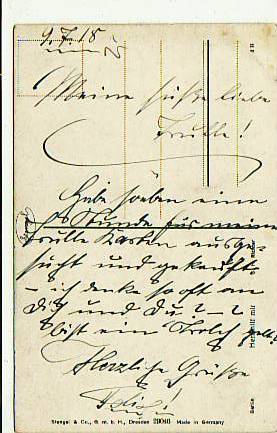 9.7.18
Meine süße liebe
Trulle!
Habe soeben eine
Stunde für meine
Trulle Karten ausge-
sucht und gekauft
– ich denke so oft an
Dich und Du? – ?
bist ein
Herzliche Grüße
Stengel & Co., G. m. b. H., Dresden 29046 Made in Germany
Berlin